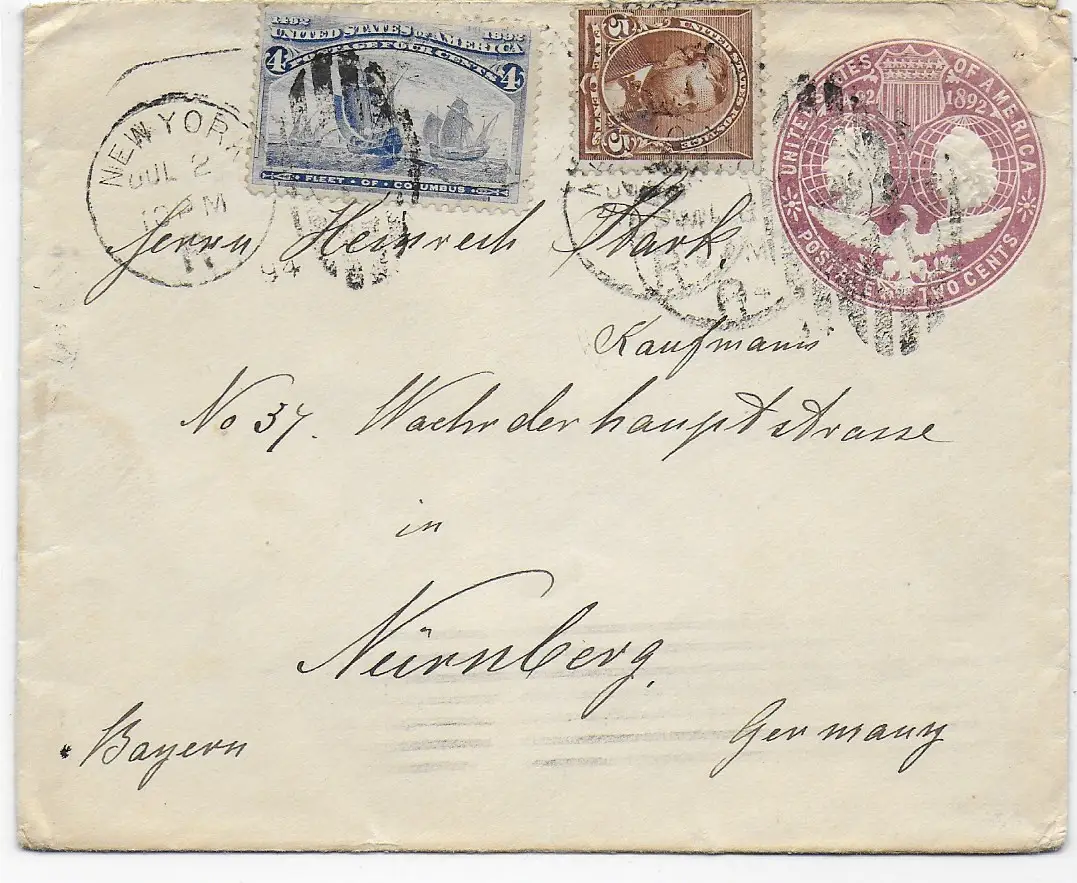 1492 1892
UNITED STATES OF AMERICA
POSTAGE FOUR CENTS
4 4
FLEET • OF • COLUMBUS
5 5
UNITED STATES POSTAGE
UNITED STATES OF AMERICA
1892
POSTAGE TWO CENTS
NEW YORK
JUL 2
PM
94
Herrn Heinrich Stark
Kaufmann
No 37. Wachrderhauptstrasse
in
Nürnberg.
Bayern
Germany